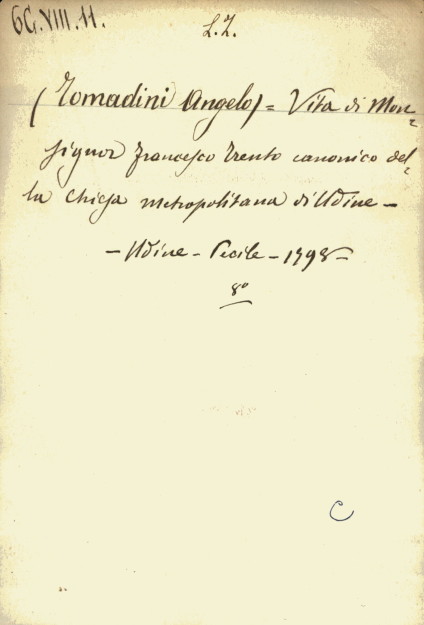 6G.VIII.11.
L.Z.
(Tomadini Angelo) = Vita di Mon=
signor Francesco Trento canonico del=
la Chiesa metropolitana di Udine -
- Udine - Pecile - 1798 -
8°
C